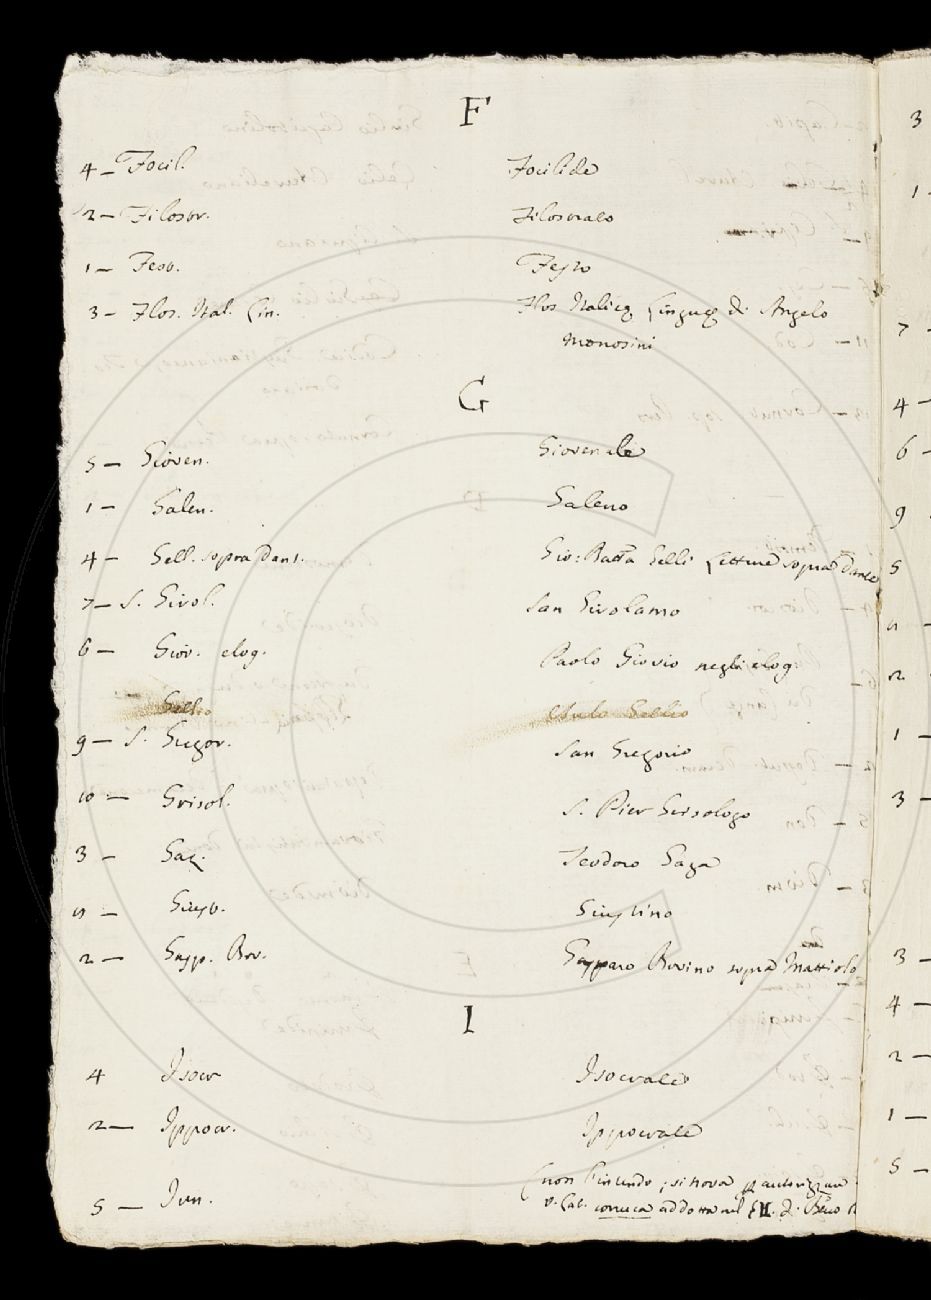 F
4 – Focil. Focilide
2 – Filostr. Filostrato
1 – Fest. Festo
3 – Flos. Ital. Lin. Flos Italicę Linguę di Angelo
Monosini
G
5 – Gioven. Giovenale
1 – Galen. Galeno
4 – Gell. sopra Dant. Gio: Batta Gelli Letture sopra Dante
7 – S. Girol. San Girolamo
6 – Giov. elog. Paolo Giovio negli elog.
Gellio Aulo Gellio
9 – S. Gregor. San Gregorio
10 – Grisol. S. Pier Grisologo
3 – Gaz. Teodoro Gaza
11 – Giust. Giustino
2 – Gasp. Bov. Gasparo Bovino sopra Mattiolo
I
4 Isocr Isocrate
2 – Ippocr. Ippocrate
5 – Iun. (non l'intendo; si trova
v. Lat. addotta nel